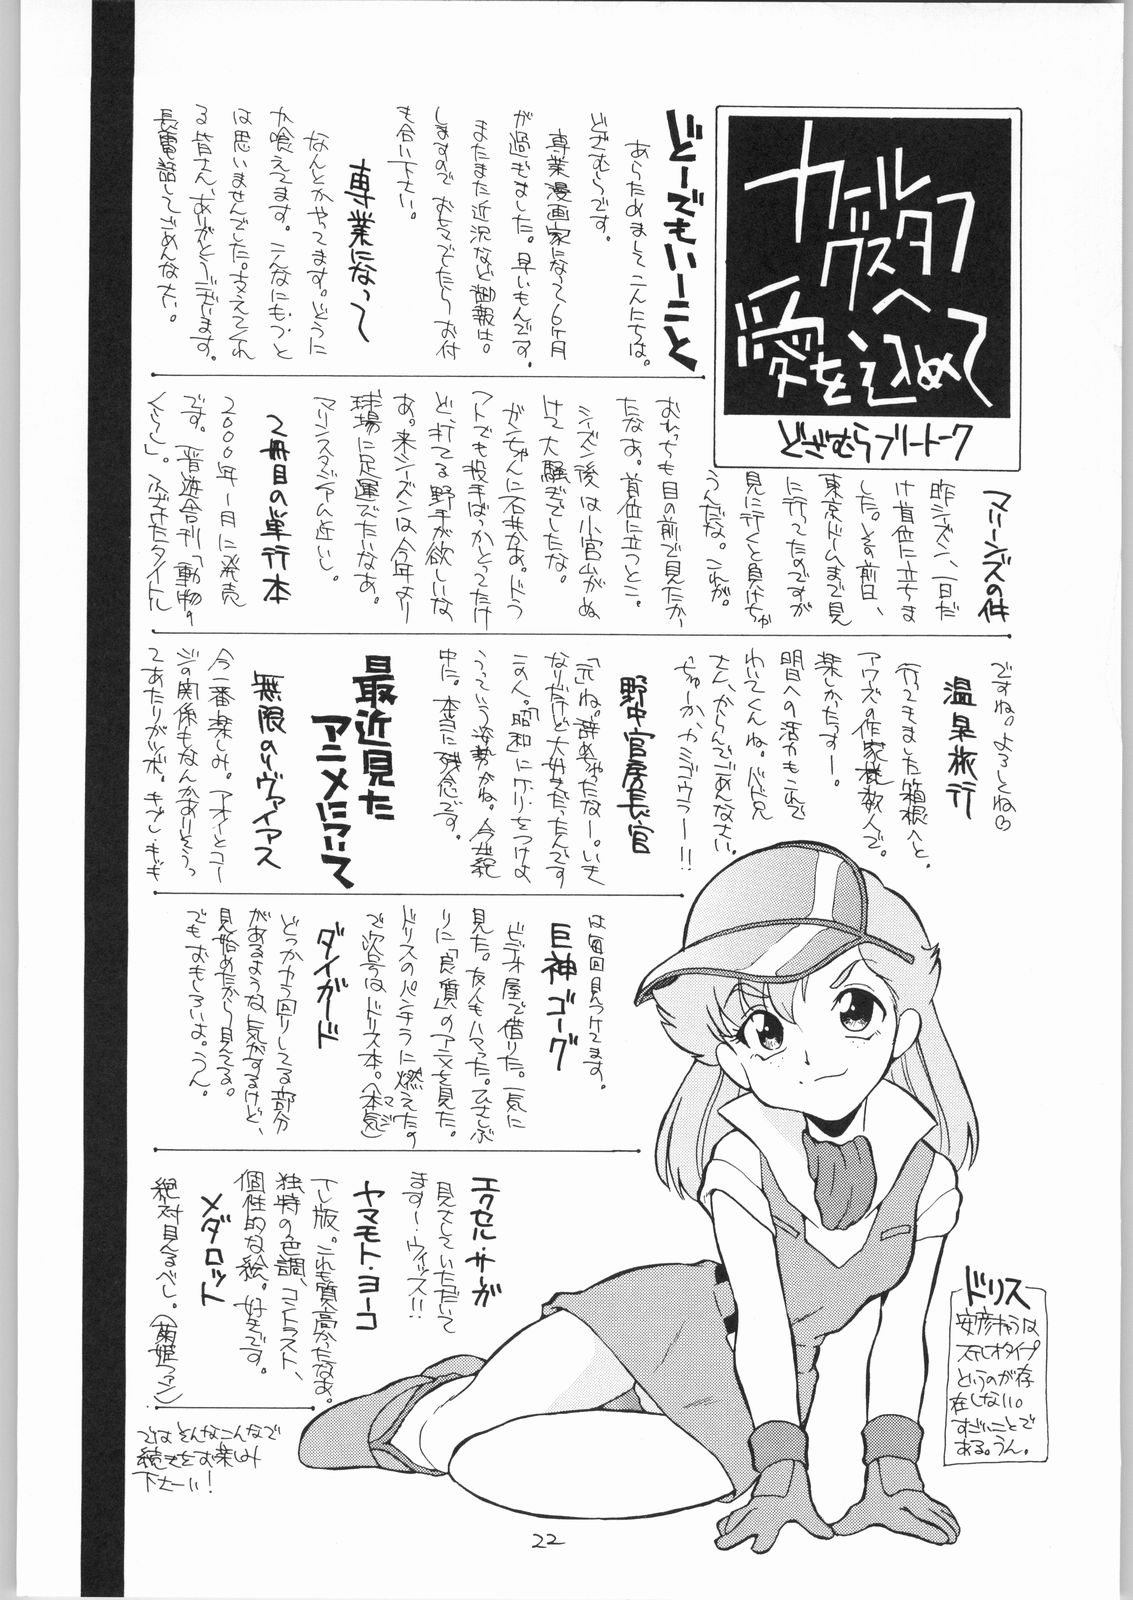 カールグスタフへ
愛を込めて
どざむらフリートーク
どーでもいーこと
あらためましてこんにちは。
どざむらです。
専業漫画家になって6ヶ月
が過ぎました。早いもんです。
またまた近況など
しますので、おヒマでたらお付
き合い下さい。
専業になって
なんとかやってます。どうに
か喰えてます。こんなにもつと
は思いませんでした。支えてくれ
る皆さん、ありがとーございます。
長電話してごめんなさい。
マリーンズの件
昨シーズン、一日だ
け首位に立ちま
した。その前日、
東京ドームまで見
に行ってたのですが
見に行くと負けちゃ
うんだな。これが。
おれっちも目の前で見たかっ
たなぁ。首位に立つとこ。
シーズン後は小宮山がぬ
けて大騒ぎでしたな。
ガンちゃんに石井かぁ。ドラ
フトでも投手ばっかとってたけ
ど、打てる野手が欲しいな
あ。来シーズンは今年より
球場に足運びたいなあ。
マリンスタジアム近いし。
2冊目の単行本
2000年1月に発売
です。晋遊舎刊「動物の
くに」。ふざけたタイトル
ですね。よろしくね♡
温泉旅行
行ってきました箱根へと。
アワズの作家様数人で。
楽しかたっすー。
明日への活力もこれで
わいてくんね。ドドメ
さん、からんでごめんなさい。
ちゅーか、カミゴウラー!!
野中官房長官
「元」ね。辞めちゃったなー。いき
なりだけど大好きだったんです
この人。「昭和」にケリをつけよ
うっていう姿勢がね。今世紀
中に。本当に残念です。
最近見た
アニメについて
無限のリヴァイアス
今一番楽しみ。アオイとコー
ジの関係もなんかありそうっ
てあたりがいいが。キブレ・キブ
は毎回見つけてます。
巨神ゴーグ
ビデオ屋で借りた。一気に
見た。友人もハマった。ひさしぶ
りに「良質」のアニメを見た。
ドリスのパンチラに燃えたの
で次号はドリス本。(本気)
マジ
ダイガード
どっか力う回りしてる部分
があるような気がするけど、
見始めたから見てる。
でもおもしろいよ。うん。
エクセル・サーガ
見てていただいて
ます!・ウィッス!!
ヤマモト・ヨーコ
TV版。これも質高かったなぁ。
独特の色調、コントラスト、
個性的な絵。好きです。
メダロット
絶対見るべし。(菊姫ファン)
ではそんなこんなで
続きをお楽しみ
下さーい!
ドリス
安彦キャラは
ステレオタイプ
というのが存
在しない。
すごいことで
ある。うん。
22